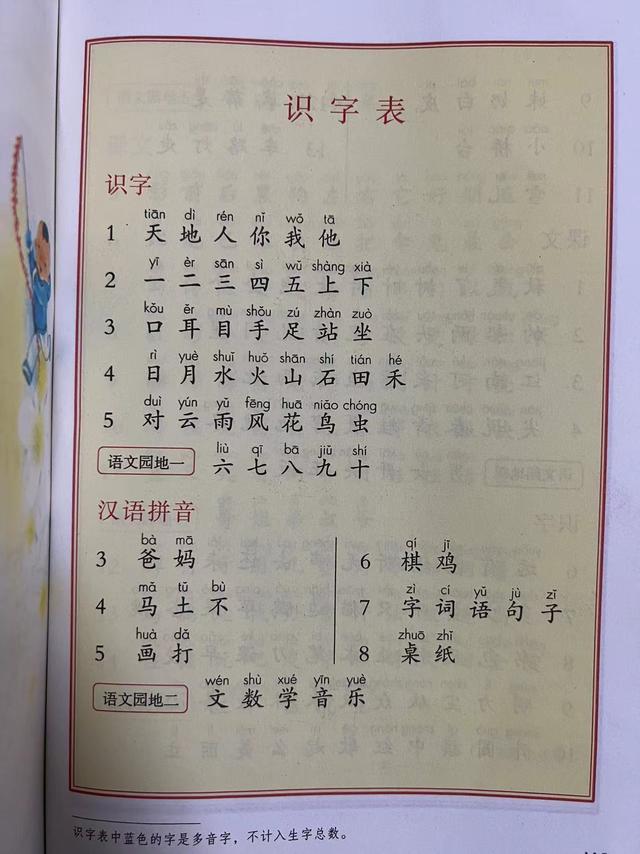 识字表
识字
tiān dì rén nǐ wǒ tā
1 天地人你我他
yī èr sān sì wǔ shàng xià
2 一二三四五上下
kǒu ěr mù shǒu zú zhàn zuò
3 口耳目手足站坐
rì yuè shuǐ huǒ shān shí tián hé
4 日月水火山石田禾
duì yún yǔ fēng huā niǎo chóng
5 对云雨风花鸟虫
liù qī bā jiǔ shí
语文园地一 六七八九十
汉语拼音
bà mā
3 爸妈
mǎ tǔ bù
4 马土不
huà dǎ
5 画打
qí jī
6 棋鸡
zì cí yǔ jù zǐ
7 字词语句子
zhuō zhǐ
8 桌纸
wén shù xué yīn yuè
语文园地二 文数学音乐
识字表中蓝色的字是多音字，不计入生字总数。